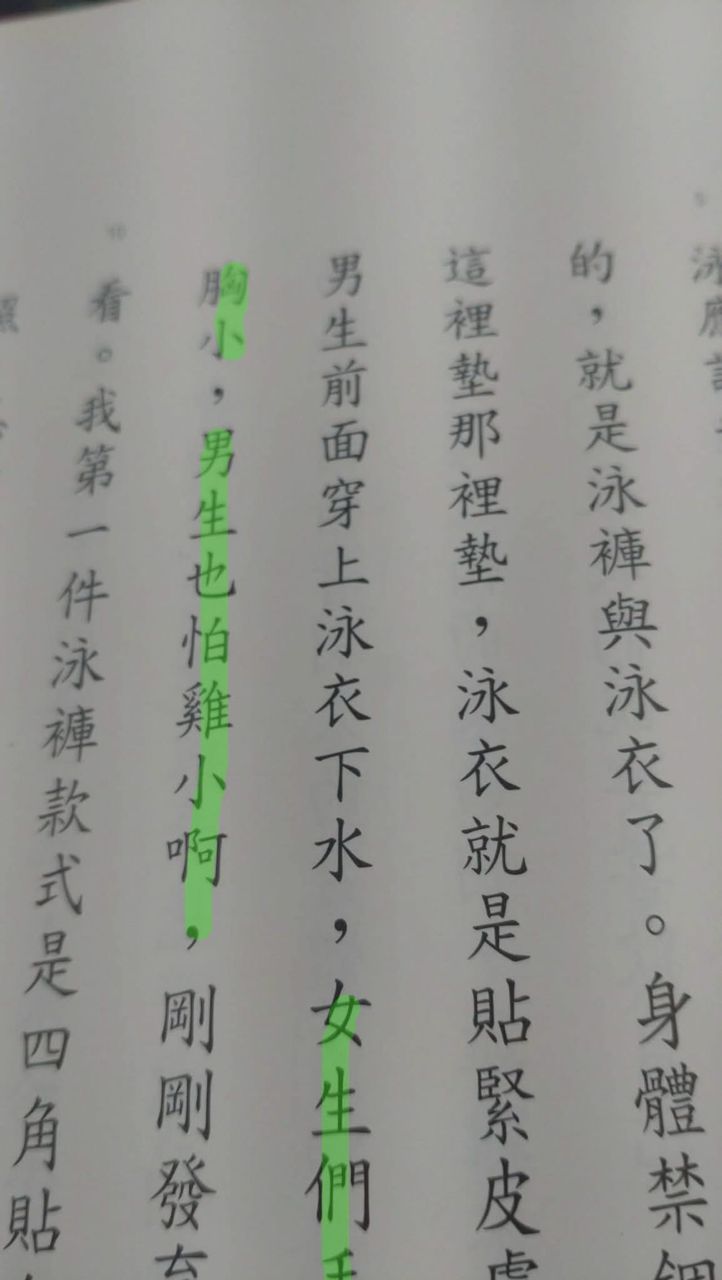 的，就是泳褲與泳衣了。身體禁
這裡墊那裡墊，泳衣就是貼緊皮
男生前面穿上泳衣下水，女生們
胸小，男生也怕雞小啊，剛剛發
看。我第一件泳褲款式是四角貼